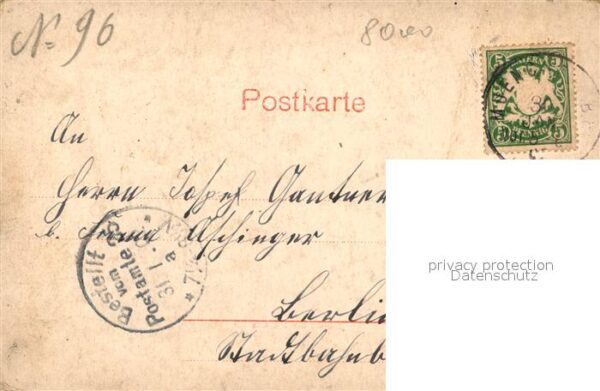 No 96
8000
5 BAYERN 5
MUENCHEN
Postkarte
An
Herrn Josef Gantner
b. Firma Aschinger
Bestellt
vom
Postamte
31 1
Berlin
Stadtbahnb
privacy protection
Datenschutz